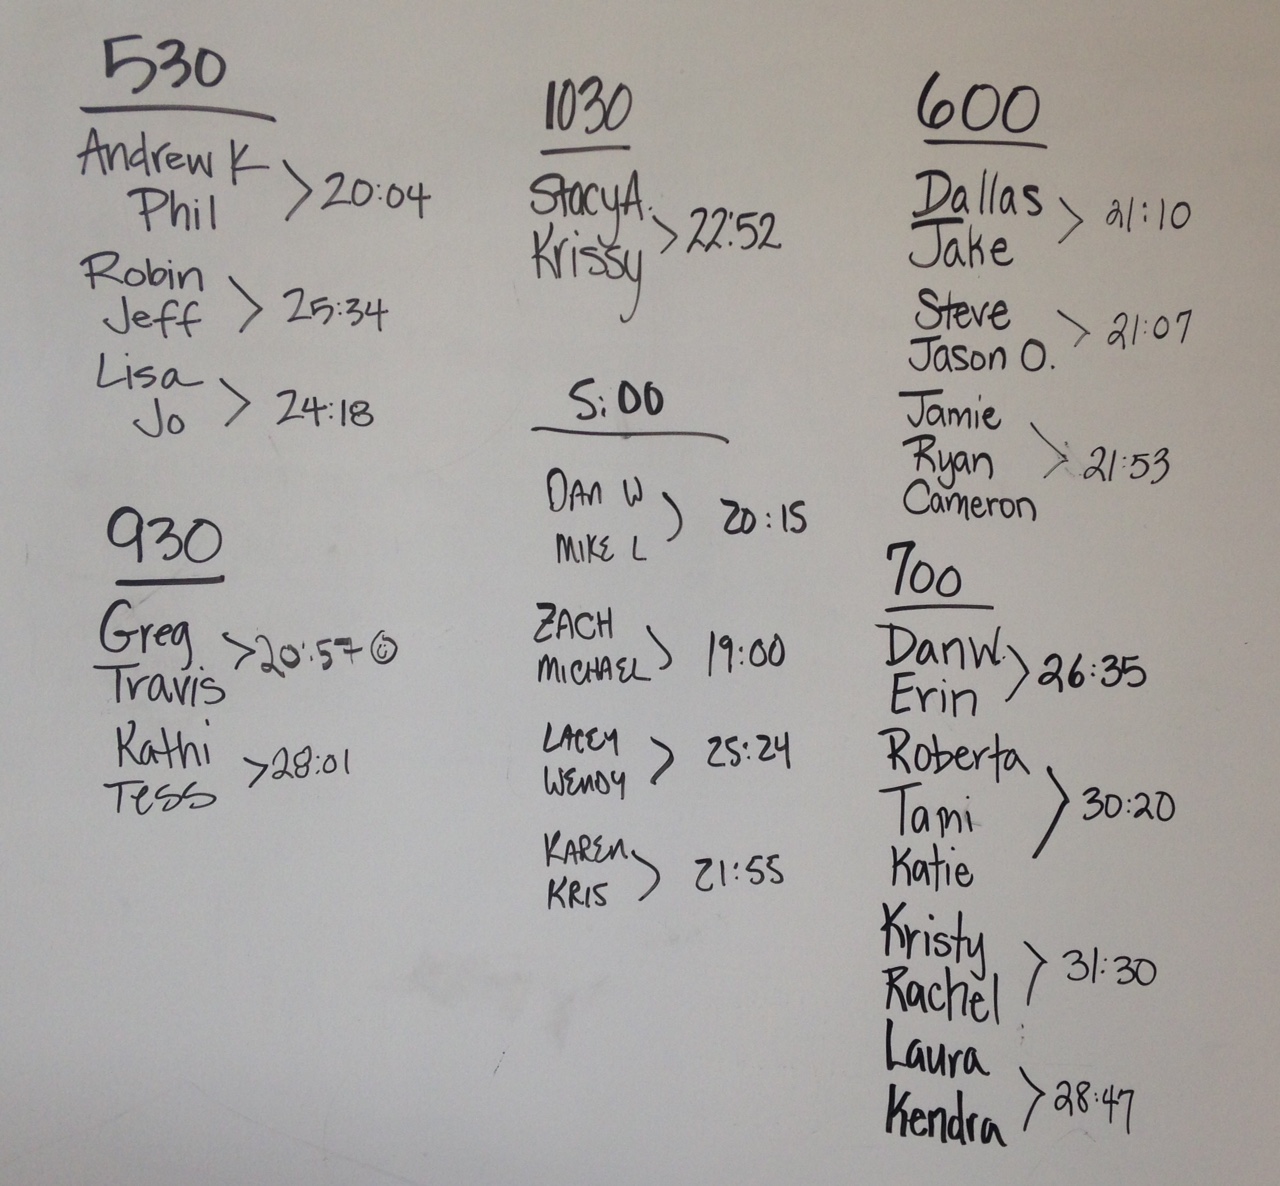 530
Andrew K
Phil
20:04
Robin
Jeff
25:34
Lisa
Jo
24:18
930
Greg
Travis
20:57 ☺
Kathi
Tess
28:01
1030
Stacy A.
Krissy
22:52
5:00
DAN W
MIKE L
20:15
ZACH
MICHAEL
19:00
LACEY
WENDY
25:24
KAREN
KRIS
21:55
600
Dallas
Jake
21:10
Steve
Jason O.
21:07
Jamie
Ryan
Cameron
21:53
700
Dan W.
Erin
26:35
Roberta
Tami
Katie
30:20
Kristy
Rachel
31:30
Laura
Kendra
28:47